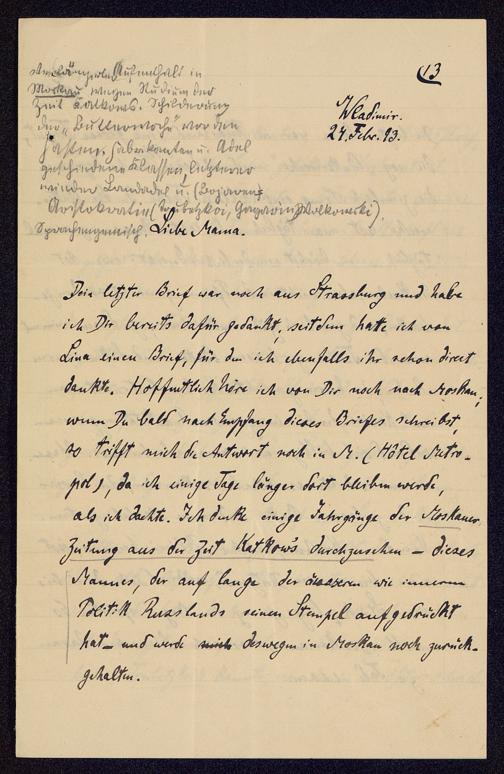 13
Verlängerter Aufenthalt in
Moskau wegen Studium der
Zeit Katkows. Schilderung
der "Butterwoche" vor den
Fasten. Fabrikanten u. Adel
geschiedene Klassen, letzterer
wieder Landadel u. (Bojaren)
Aristokratie (Trubetzkoi, Gagarin, Wolkonski).
Sprachengemisch.
Wladimir.
24. Febr. 93.
Liebe Mama.
Dein letzter Brief war noch aus Strassburg und habe
ich Dir bereits dafür gedankt, seitdem hatte ich von
Lina einen Brief, für den ich ebenfalls ihr schon direct
dankte. Hoffentlich höre ich von Dir noch nach Moskau;
wenn Du bald nach Empfang dieses Briefes schreibst,
so trifft mich die Antwort noch in M. (Hôtel Metro-
pol), da ich einige Tage länger dort bleiben werde,
als ich dachte. Ich denke einige Jahrgänge der Moskauer
Zeitung aus der Zeit Katkow's durchzusehen – dieses
Mannes, der auf lange der äusseren wie inneren
Politik Russlands seinen Stempel aufgedrückt
hat – und werde mich deswegen in Moskau noch zurück-
gehalten.